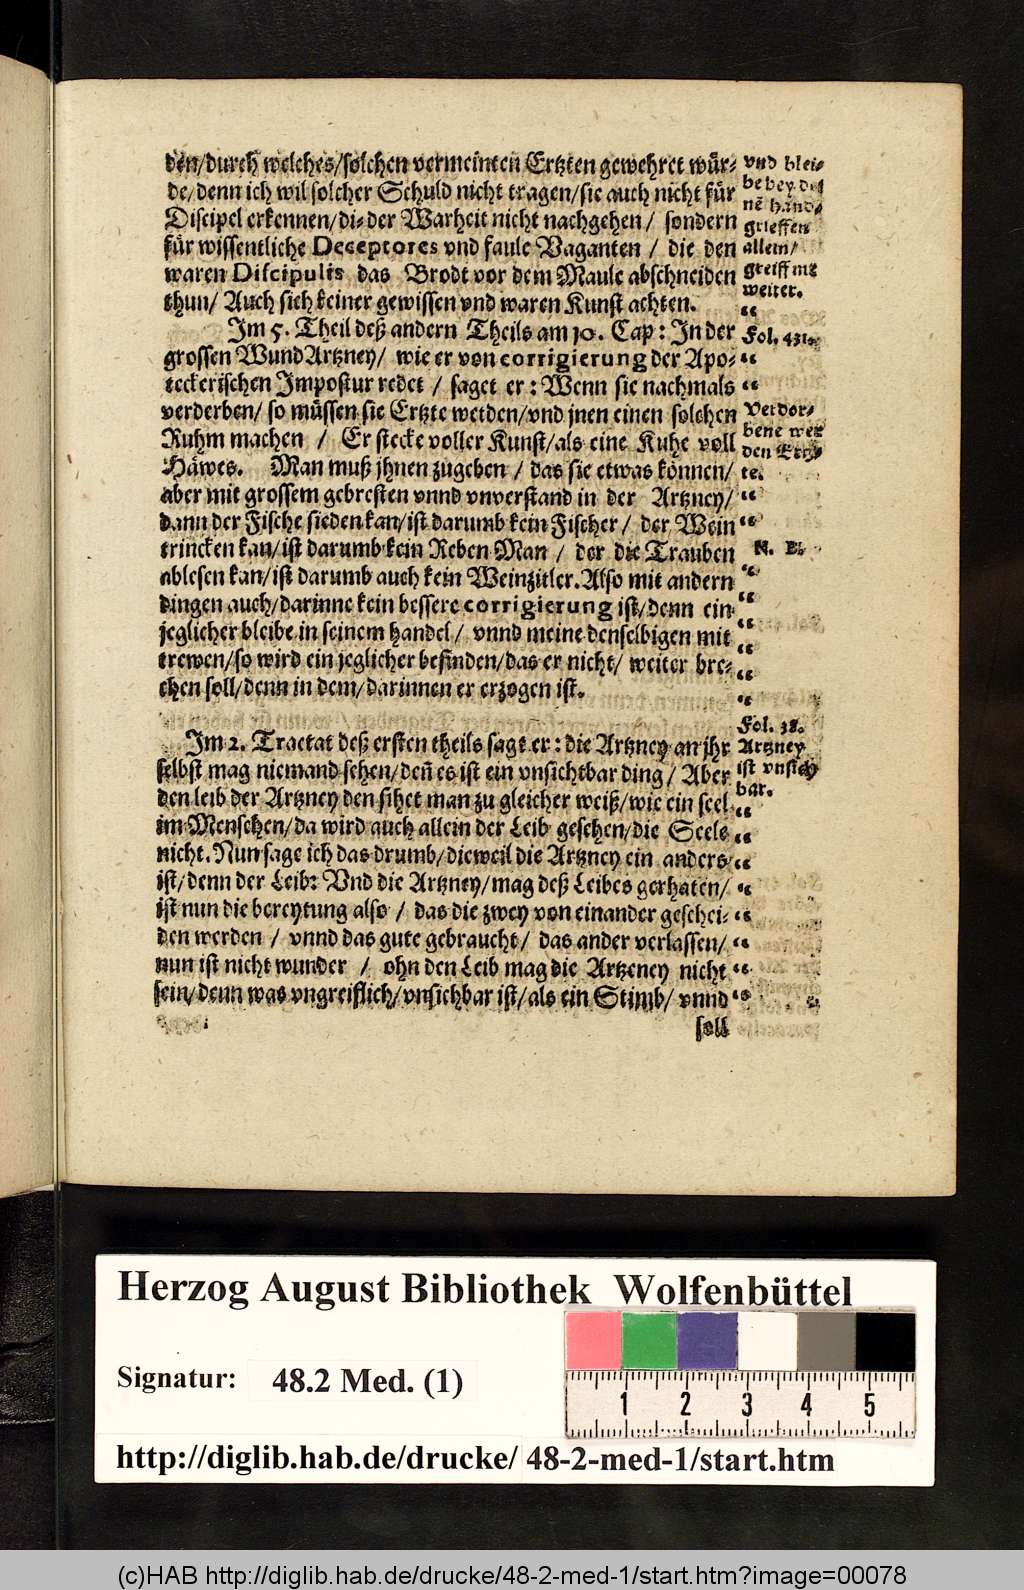 den/durch welches/solchen vermeinten Ertzten gewehret wür-
de/denn ich wil solcher Schuld nicht tragen/sie auch nicht für
Discipel erkennen/di-der Warheit nicht nachgehen/ sondern
für wissentliche Deceptores vnd faule Vaganten / die den
waren Discipulis das Brodt vor dem Maule abschneiden
thun/ Auch sich keiner gewissen vnd waren Kunst achten.
Im 5. Theil deß andern Theils am 10. Cap: In der
grossen WundArtzney/ wie er von corrigierung der Apo-
teckerischen Impostur redet / saget er: Wenn sie nachmals
verderben/ so müssen sie Ertzte werden/vnd jnen einen solchen
Ruhm machen / Er stecke voller Kunst/als eine Kuhe voll
Häwes. Man muß jhnen zugeben / das sie etwas können/
aber mit grossem gebresten vnnd vnverstand in der Artzney/
dann der Fische sieden kan/ist darumb kein Fischer/ der Wein
trincken kan/ist darumb kein Reben Man / der die Trauben
ablesen kan/ist darumb auch kein Weinzütler. Also mit andern
dingen auch/darinne kein bessere corrigierung ist/denn ein
jeglicher bleibe in seinem handel/ vnnd meine denselbigen mit
trewen/so wird ein jeglicher befinden/das er nicht/ weiter bre-
chen soll/denn in dem/darinnen er erzogen ist.
Im 2. Tractat deß ersten theils sagt er: die Artzney an jhr
selbst mag niemand sehen/deñ es ist ein vnsichtbar ding/ Aber
den leib der Artzney den sihet man zu gleicher weiß/wie ein seel
im Menschen/da wird auch allein der Leib gesehen/die Seele
nicht. Nun sage ich das drumb/dieweil die Artzney ein anders
ist/denn der Leib: Vnd die Artzney/mag deß Leibes gerhaten/
ist nun die bereytung also / das die zwey von einander geschei-
den werden / vnnd das gute gebraucht/ das ander verlassen/
nun ist nicht wunder / ohn den Leib mag die Artzeney nicht
sein/denn was vngreiflich/vnsichbar ist/als ein Stimb/ vnnd
soll
vnd blei-
be bey
nē händ-
grieffen
allein/
greiff
weiter.
“
Fol. 431.
“
“
Verdor-
bene wer
den Ertz-
te.
“
“
N. B.
“
“
“
“
“
“
Fol. 38.
Artzney
ist vnsich
bar.
“
“
“
“
“
“
“
“
Herzog August Bibliothek Wolfenbüttel
Signatur: 48.2 Med. (1)
1 2 3 4 5
http://diglib.hab.de/drucke/ 48-2-med-1/start.htm
(c)HAB http://diglib.hab.de/drucke/48-2-med-1/start.htm?image=00078